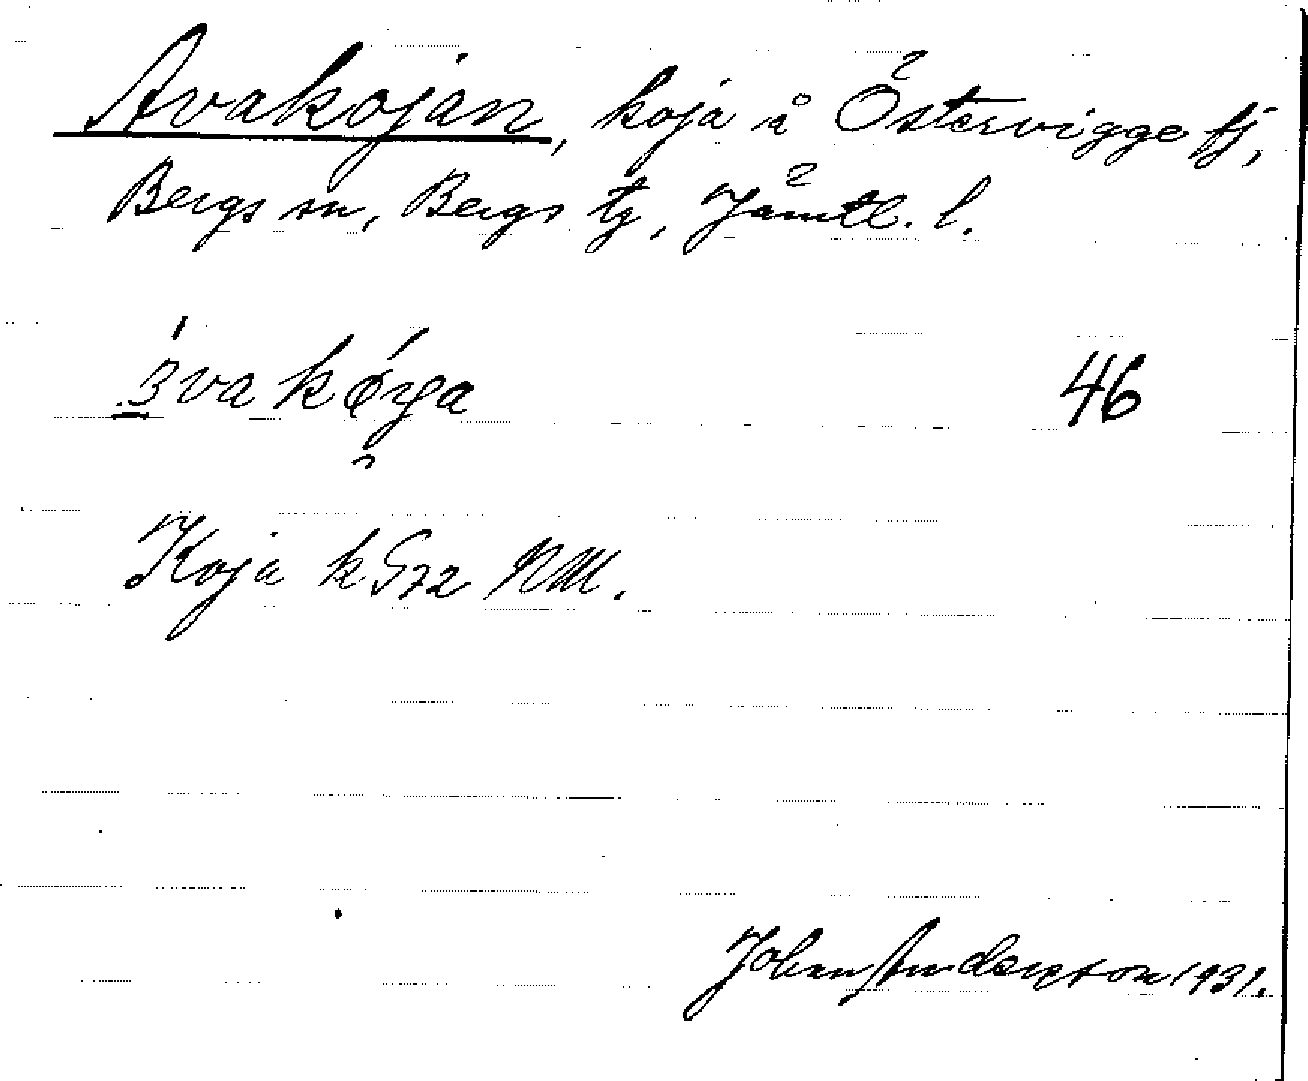 Avakojan, koja å Östervigge fj,
Bergs sn, Bergs tg, Jämtl. l.
46
Koja k G72 NM.
Johan Anderson 1931.